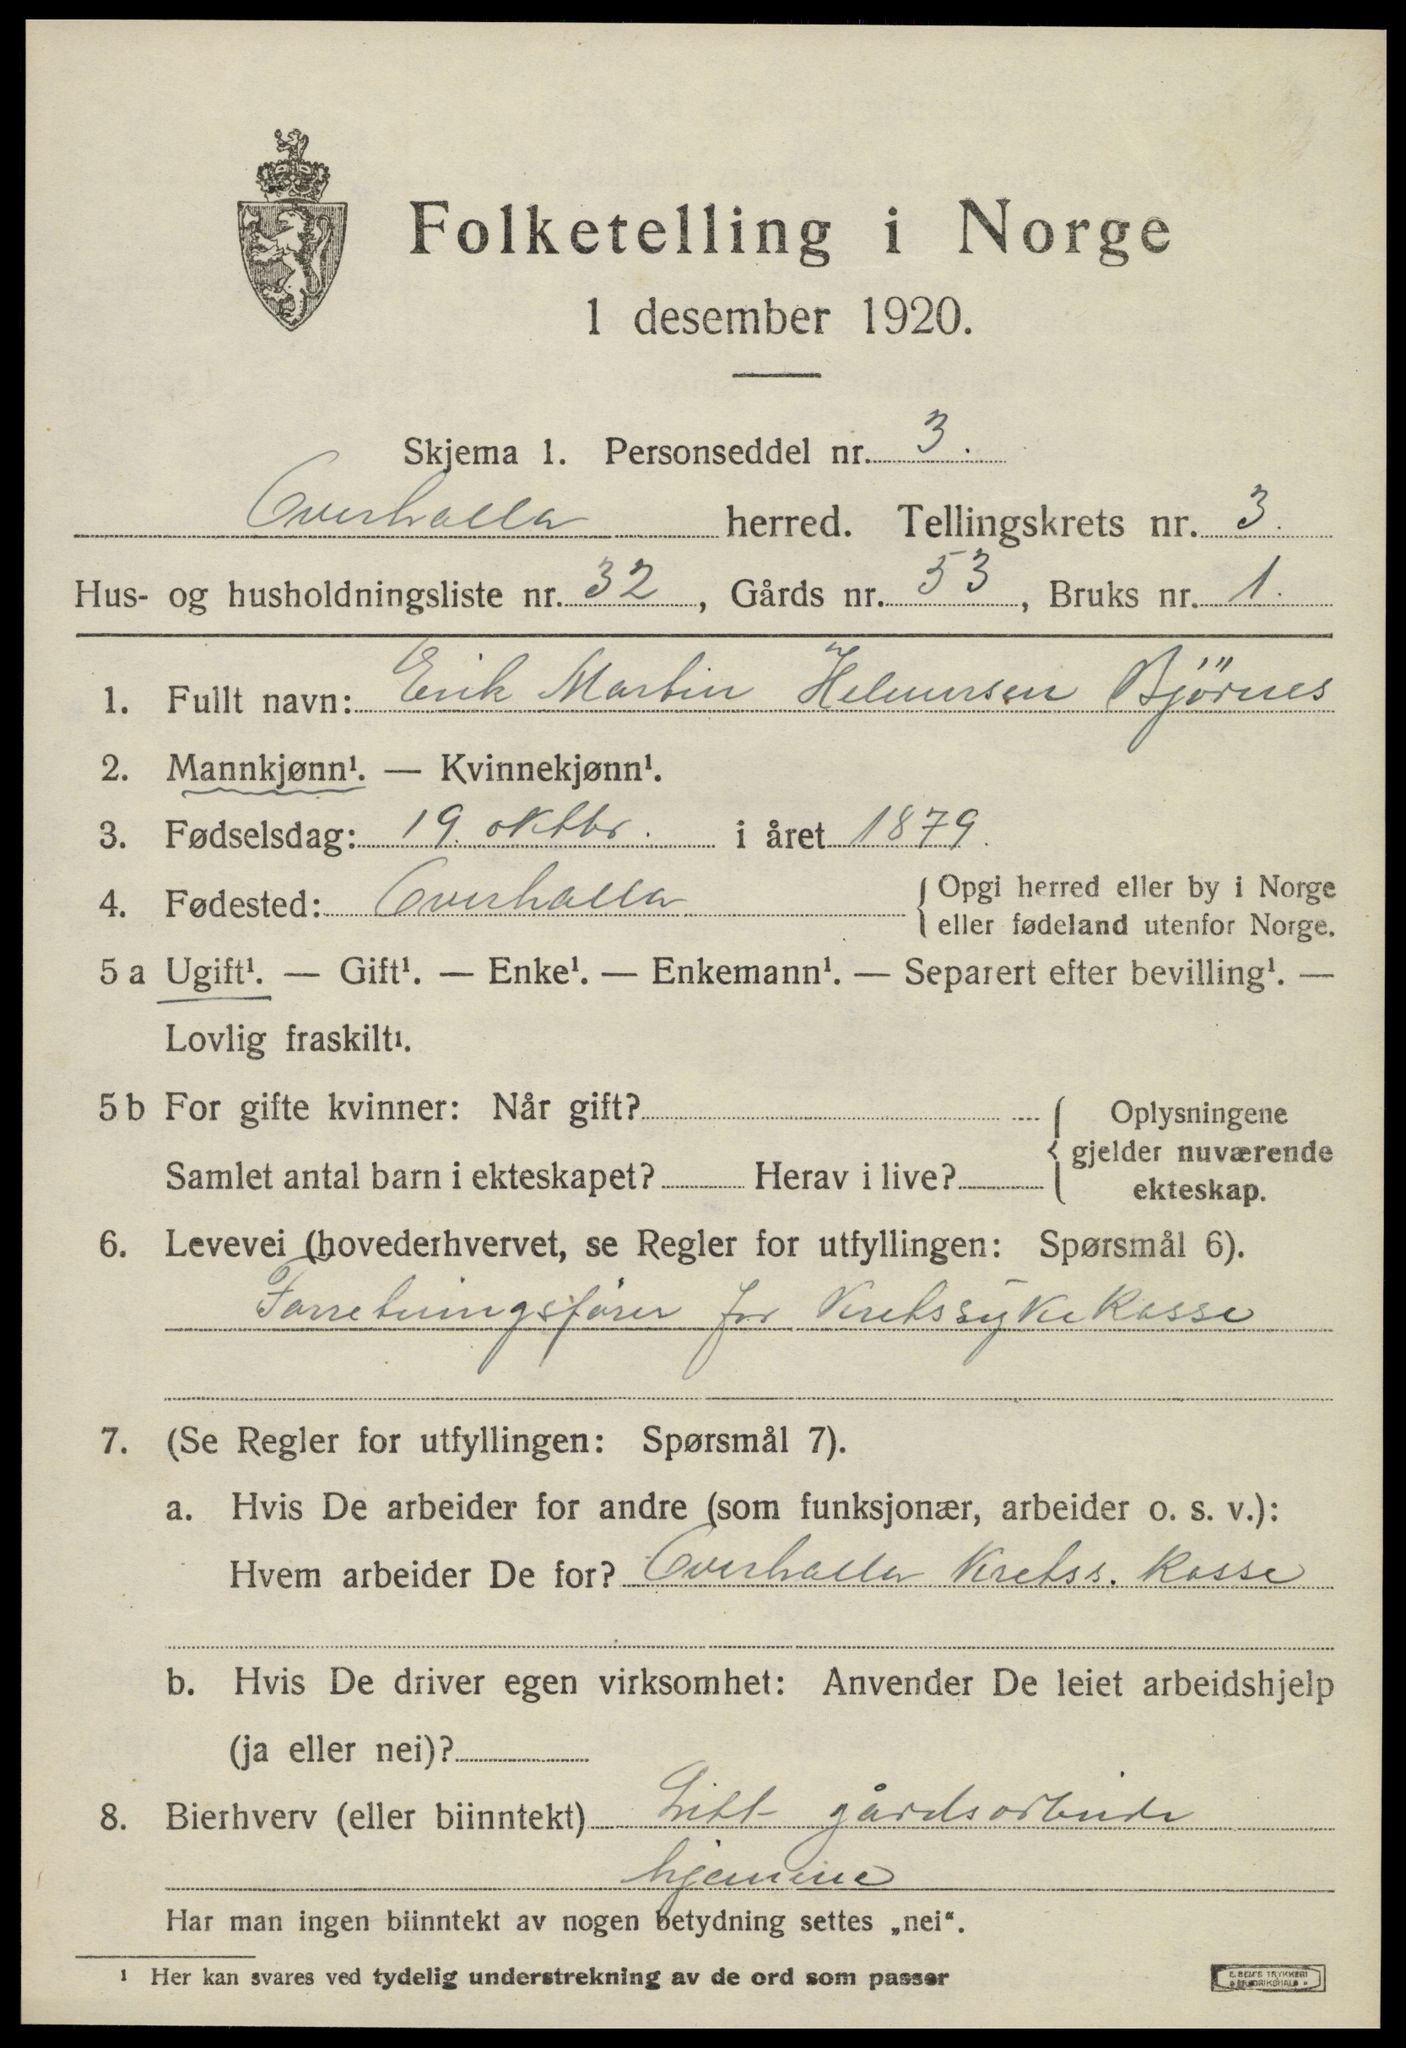 Folketelling i Norge
1 desember 1920.
Skjema 1. Personseddel nr. 3.
Overhalla herred. Tellingskrets nr. 3.
Hus- og husholdningsliste nr. 32, Gårds nr. 53, Bruks nr. 1.
1. Fullt navn: Erik Martin Helmersen Bjørnes
2. Mannkjønn¹. — Kvinnekjønn¹.
3. Fødselsdag: 19. oktbr. i året 1879.
4. Fødested: Overhalla { Opgi herred eller by i Norge
eller fødeland utenfor Norge.
5 a Ugift¹. — Gift¹. — Enke¹. — Enkemann¹. — Separert efter bevilling¹. —
Lovlig fraskilt¹.
5 b For gifte kvinner: Når gift? { Oplysningene
gjelder nuværende
Samlet antal barn i ekteskapet? Herav i live? ekteskap.
6. Levevei (hovederhvervet, se Regler for utfyllingen: Spørsmål 6).
Forretningsfører for Kretssykekasse
7. (Se Regler for utfyllingen: Spørsmål 7).
a. Hvis De arbeider for andre (som funksjonær, arbeider o. s. v.):
Hvem arbeider De for? Overhalla Kretss. kasse
b. Hvis De driver egen virksomhet: Anvender De leiet arbeidshjelp
(ja eller nei)?
8. Bierhverv (eller biinntekt) Litt gårdsarbeide
hjemme
Har man ingen biinntekt av nogen betydning settes „nei“.
¹ Her kan svares ved tydelig understrekning av de ord som passer
E. SEM'S TRYKKERI
FREDRIKSHALD